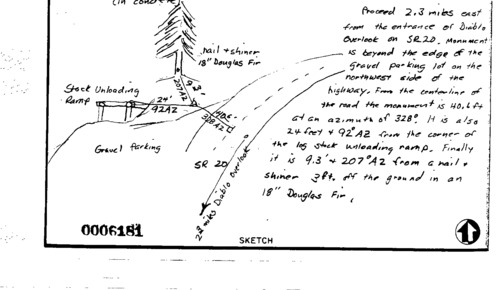 (in concrete)
nail + shiner
18" Douglas Fir
9.3'
207°AZ
Stock Unloading
Ramp
24'
92°AZ
40.6
328°AZ
Gravel Parking
SR 20
2.3 miles Diablo Overlook
Proceed 2.3 miles east
from the entrance of Diablo
Overlook on SR20, monument
is beyond the edge of the
gravel parking lot on the
northwest side of the
highway. From the centerline of
the road the monument is 40.6 ft
at an azimuth of 328°. It is also
24 feet + 92°AZ from the corner of
the log stock unloading ramp. Finally
it is 9.3' + 207°AZ from a nail +
shiner 3ft. off the ground in an
18" Douglas Fir.
0006181
SKETCH